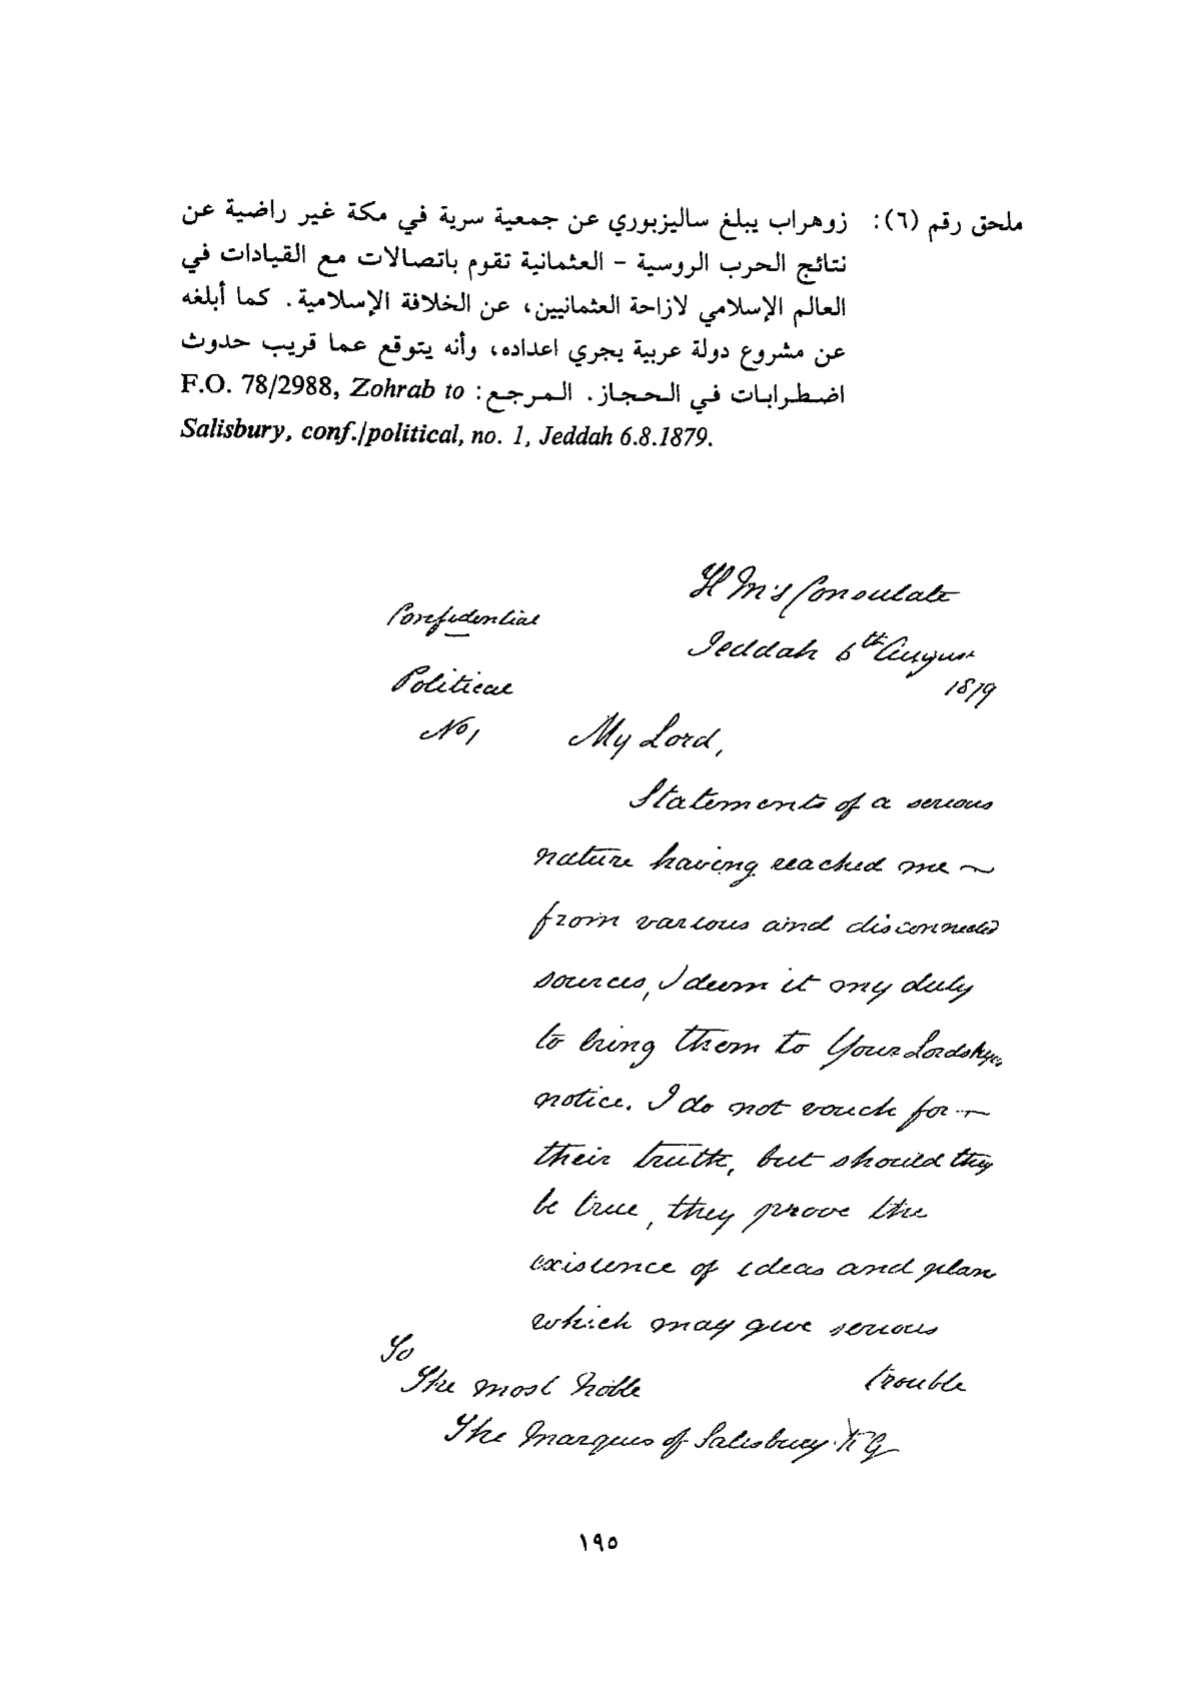 ملحق رقم (٦): زوهراب يبلغ ساليزبوري عن جمعية سرية في مكة غير راضية عن
نتائج الحرب الروسية – العثمانية تقوم باتصالات مع القيادات في
العالم الإسلامي لازاحة العثمانيين، عن الخلافة الإسلامية. كما أبلغه
عن مشروع دولة عربية يجري اعداده، وأنه يتوقع عما قريب حدوث
اضطرابات في الحجاز. المرجع: F.O. 78/2988, Zohrab to
Salisbury, conf./political, no. 1, Jeddah 6.8.1879.
H M's Consulate
Jeddah 6th August
1879
Confidential
Political
No 1
My Lord,
Statements of a serious
nature having reached me
from various and disconnected
sources, I deem it my duty
to bring them to Your Lordship's
notice. I do not vouch for
their truth, but should they
be true, they prove the
existence of ideas and plans
which may give serious
trouble
To
The most Noble
The Marquis of Salisbury. K G
١٩٥